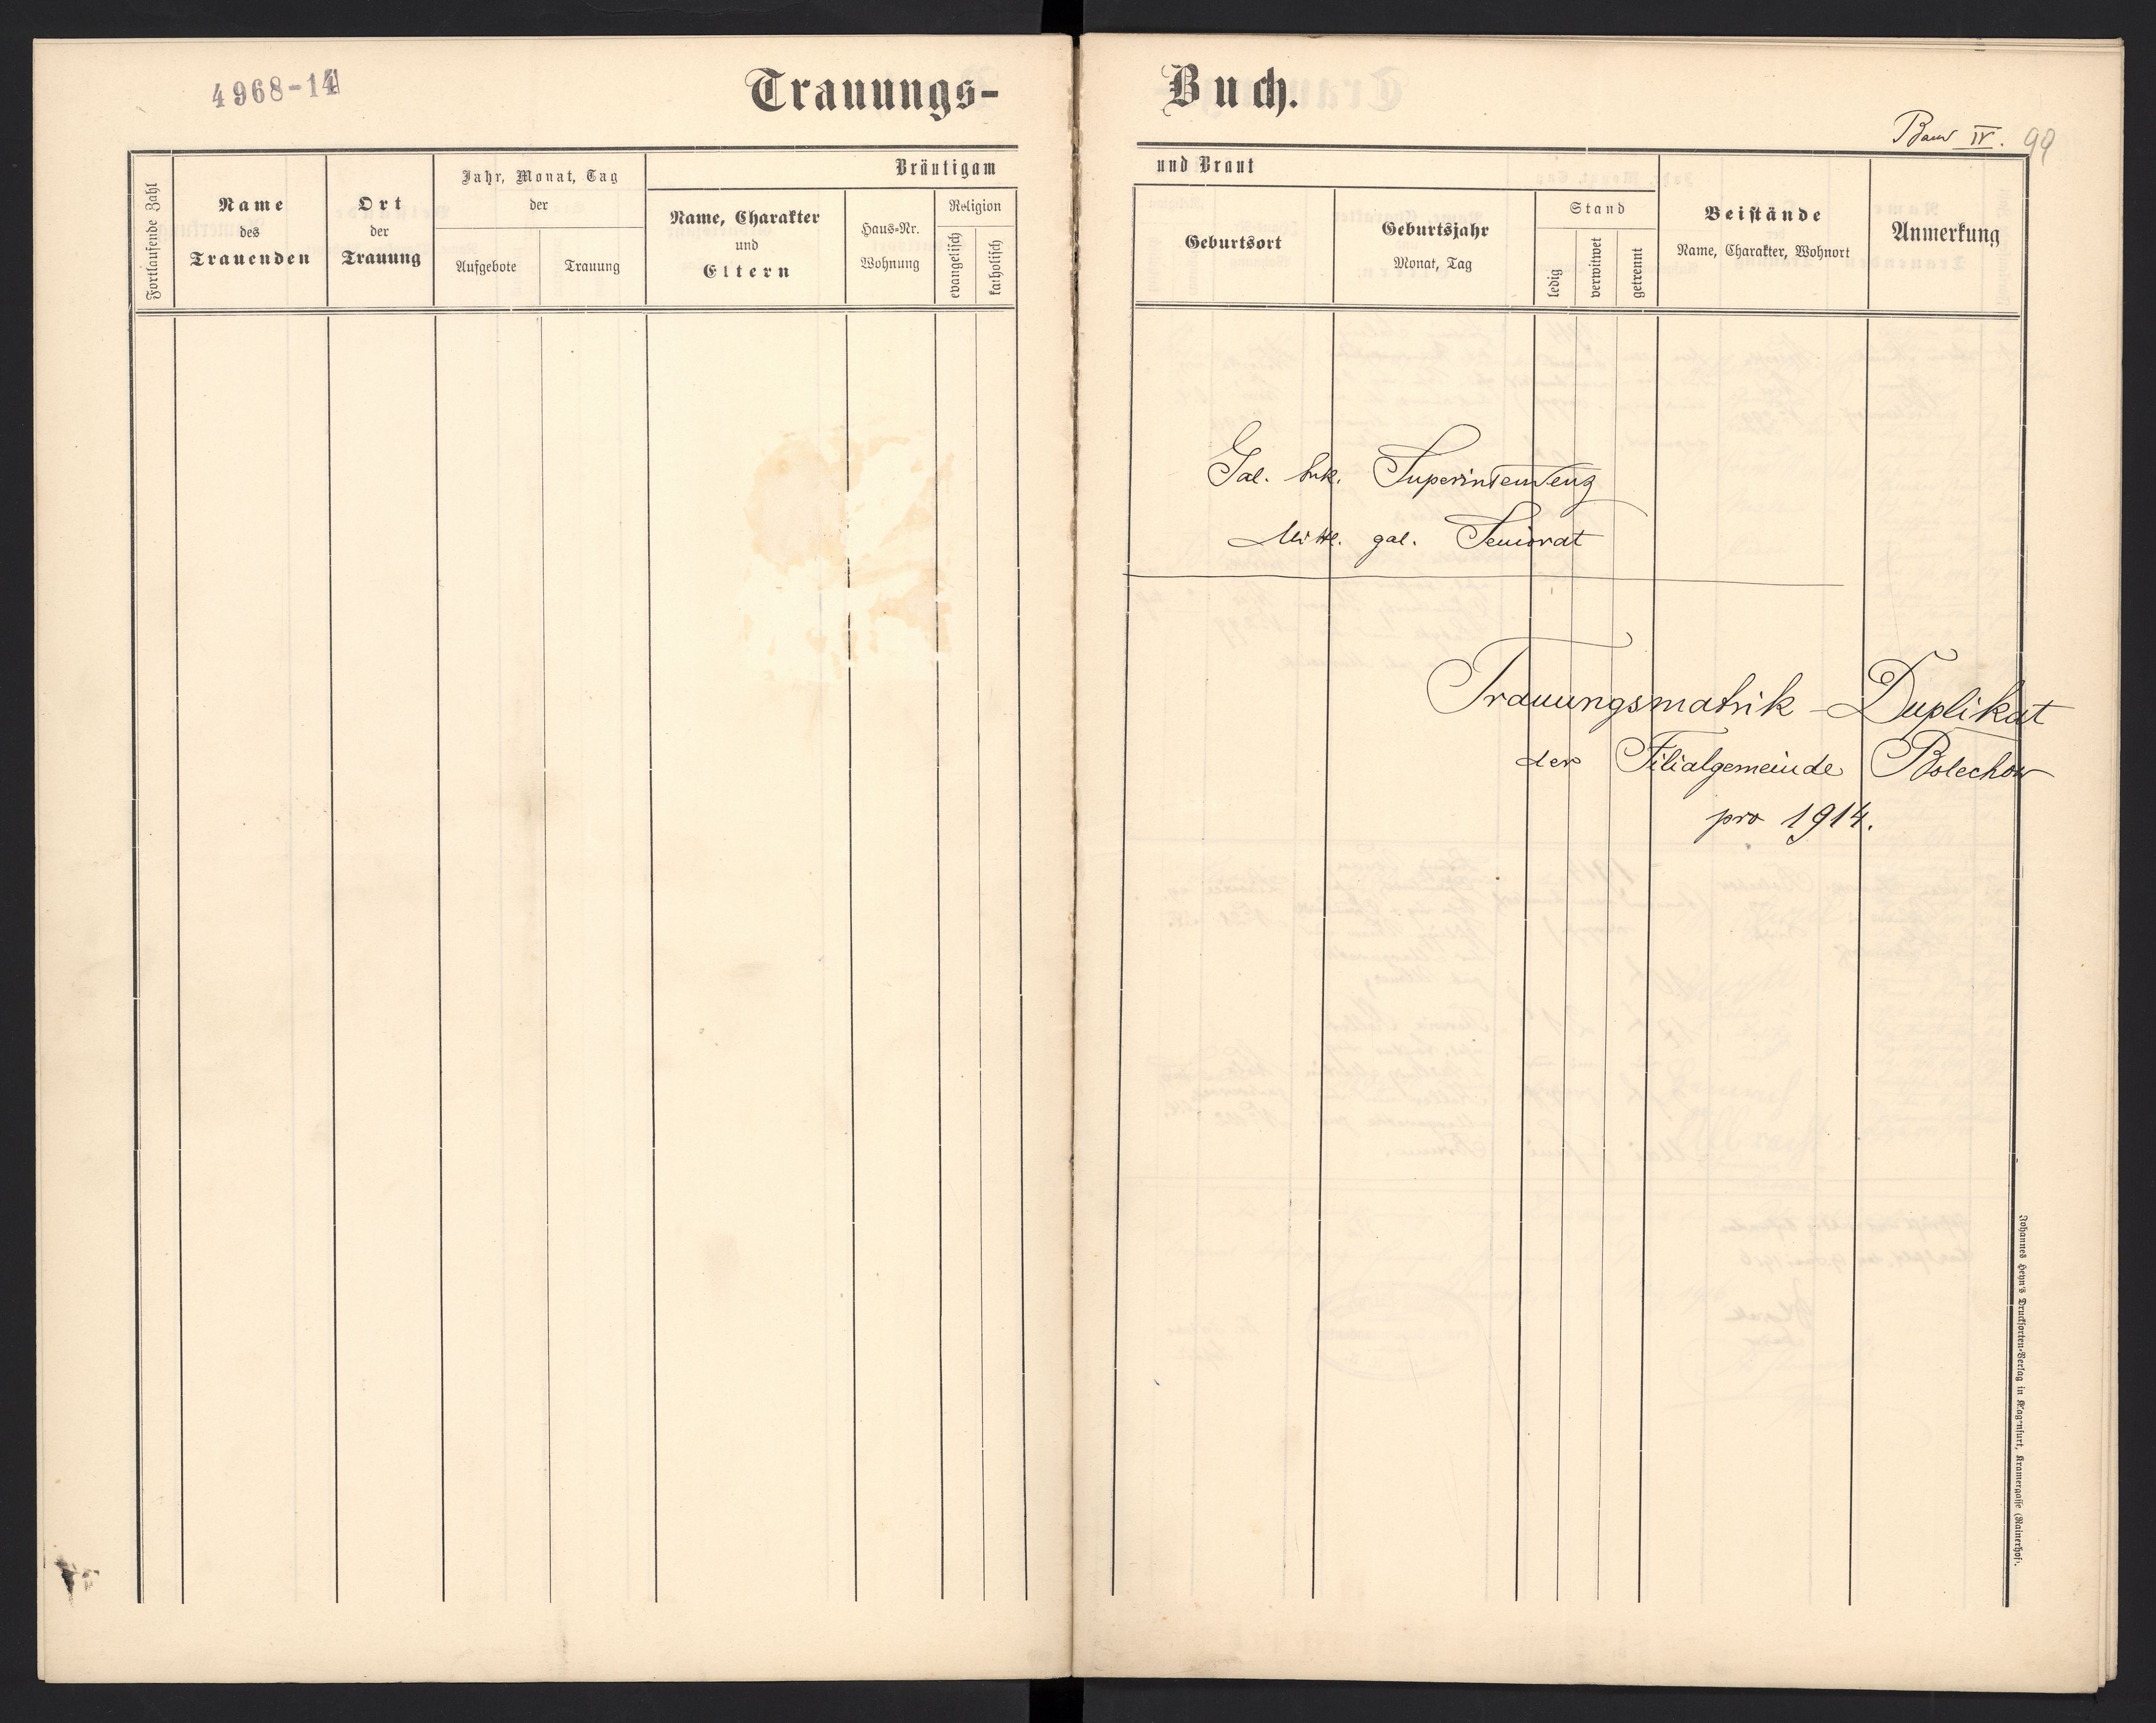 4968-14
Trauungs-
Fortlaufende Zahl
Name
des
Trauenden
Ort
der
Trauung
Jahr, Monat, Tag
der
Aufgebote
Trauung
Bräutigam
Name, Charakter
und
Eltern
Haus-Nr.
Wohnung
Religion
evangelisch
katholisch
Buch.
Band IV. 99
und Braut
Geburtsort
Geburtsjahr
Monat, Tag
Stand
ledig
verwitwet
getrennt
Beistände
Name, Charakter, Wohnort
Anmerkung
Gal. buk. Superintendenz
Mittl. gal. Seniorat
Trauungsmatrik - Duplikat
der Filialgemeinde Bolechow
pro 1914.
Johannes Heyn's Drucksorten-Verlag in Klagenfurt, Kramergasse (Rainerhof).